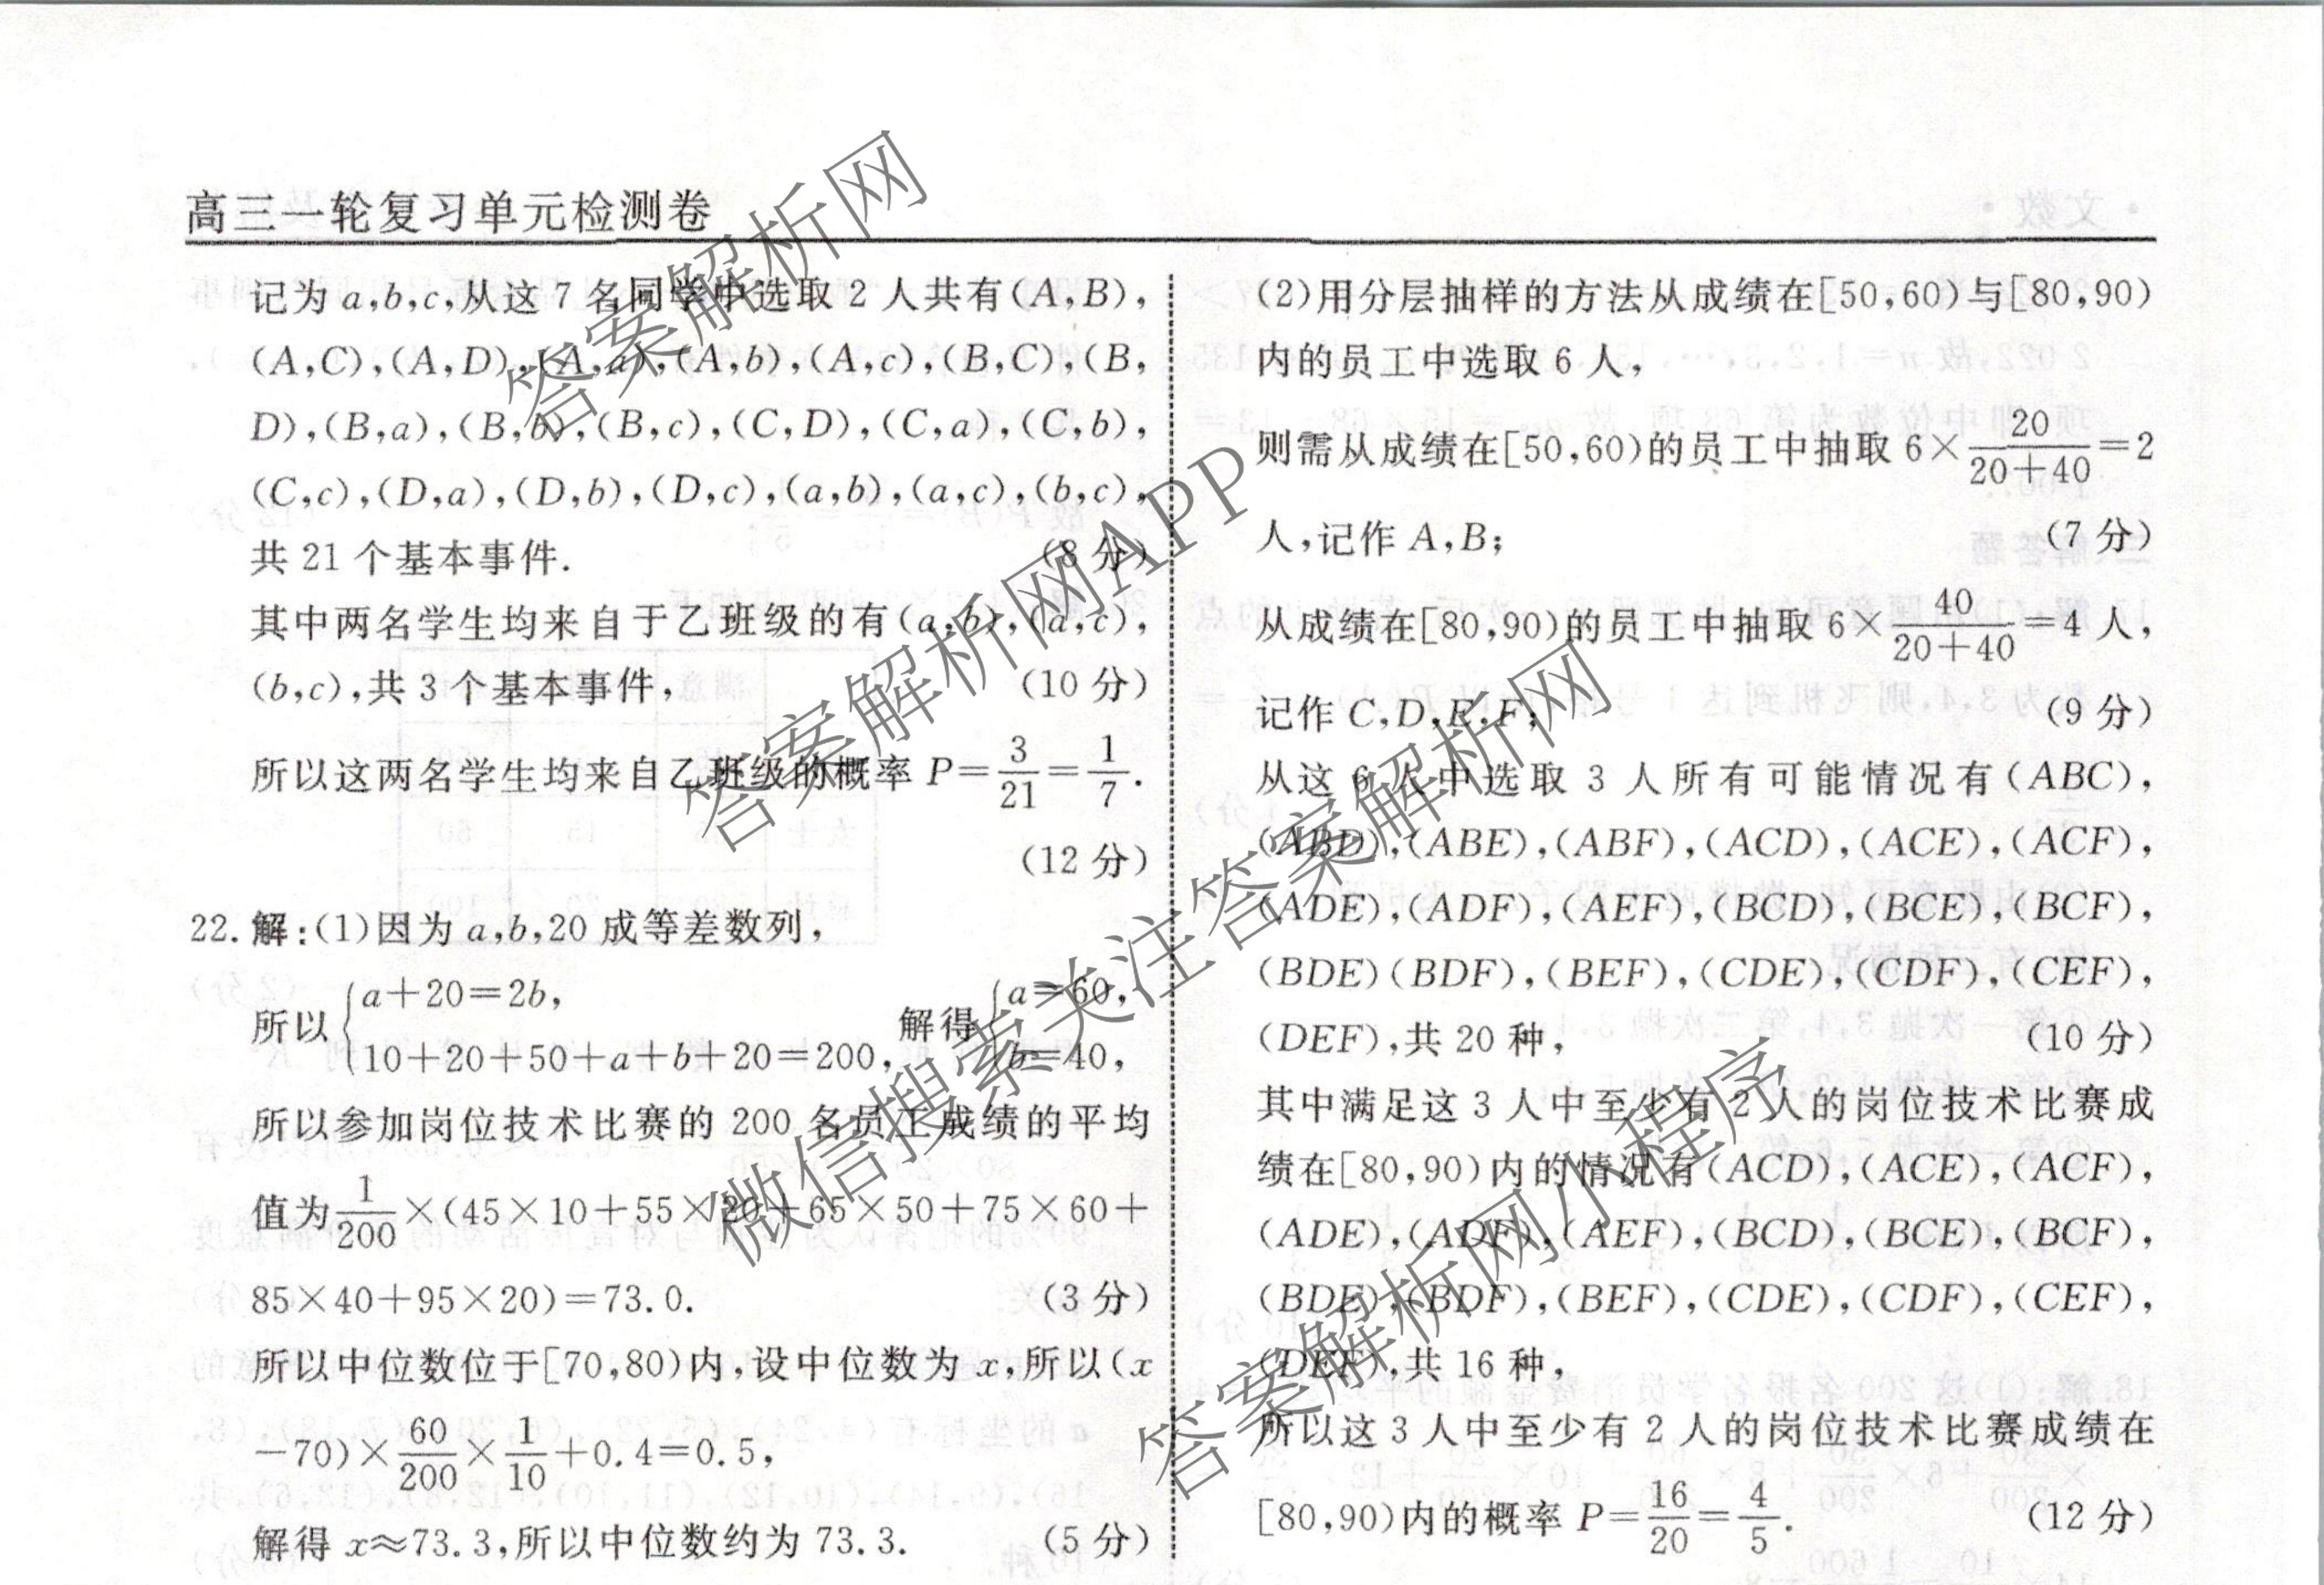 高三一轮复习单元检测卷
记为 a,b,c,从这 7 名同学中选取 2 人共有(A,B),
(A,C),(A,D),(A,a),(A,b),(A,c),(B,C),(B,
D),(B,a),(B,b),(B,c),(C,D),(C,a),(C,b),
(C,c),(D,a),(D,b),(D,c),(a,b),(a,c),(b,c),
共 21 个基本事件. (8 分)
其中两名学生均来自于乙班级的有(a,b),(a,c),
(b,c),共 3 个基本事件, (10 分)
所以这两名学生均来自乙班级的概率 P=3/21=1/7.
(12 分)
22. 解:(1)因为 a,b,20 成等差数列,
所以{a+20=2b, 10+20+50+a+b+20=200, 解得{a=60, b=40,
所以参加岗位技术比赛的 200 名员工成绩的平均
值为1/200×(45×10+55×20+65×50+75×60+
85×40+95×20)=73.0. (3 分)
所以中位数位于[70,80)内,设中位数为 x,所以(x
-70)×60/200×1/10+0.4=0.5,
解得 x≈73.3,所以中位数约为 73.3. (5 分)
(2)用分层抽样的方法从成绩在[50,60)与[80,90)
内的员工中选取 6 人,
则需从成绩在[50,60)的员工中抽取 6×20/(20+40)=2
人,记作 A,B; (7 分)
从成绩在[80,90)的员工中抽取 6×40/(20+40)=4 人,
记作 C,D,E,F; (9 分)
从这 6 人中选取 3 人所有可能情况有(ABC),
(ABD),(ABE),(ABF),(ACD),(ACE),(ACF),
(ADE),(ADF),(AEF),(BCD),(BCE),(BCF),
(BDE)(BDF),(BEF),(CDE),(CDF),(CEF),
(DEF),共 20 种, (10 分)
其中满足这 3 人中至少有 2 人的岗位技术比赛成
绩在[80,90)内的情况有(ACD),(ACE),(ACF),
(ADE),(ADF),(AEF),(BCD),(BCE),(BCF),
(BDE),(BDF),(BEF),(CDE),(CDF),(CEF),
(DEF),共 16 种,
所以这 3 人中至少有 2 人的岗位技术比赛成绩在
[80,90)内的概率 P=16/20=4/5. (12 分)
答案解析网
答案解析网APP
微信搜索关注答案解析网
答案解析网小程序